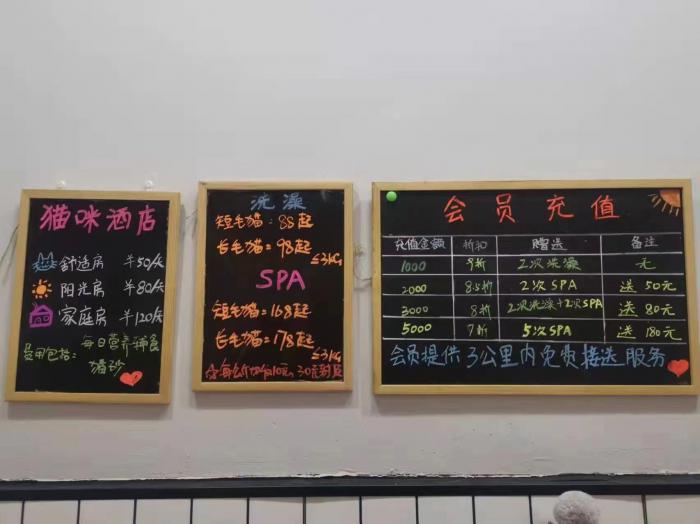 猫咪酒店
舒适房 ¥50/天
阳光房 ¥80/天
家庭房 ¥120/天
费用包括: 每日营养辅食
猫砂
洗澡
短毛猫:88起
长毛猫:98起
≤3kg
SPA
短毛猫:168起
长毛猫:178起
≤3kg
会员充值
充值金额 折扣 赠送 备注
1000 9折 2次洗澡 无
2000 8.5折 2次SPA 送50元
3000 8折 2次洗澡+2次SPA 送80元
5000 7折 5次SPA 送180元
会员提供3公里内免费接送服务